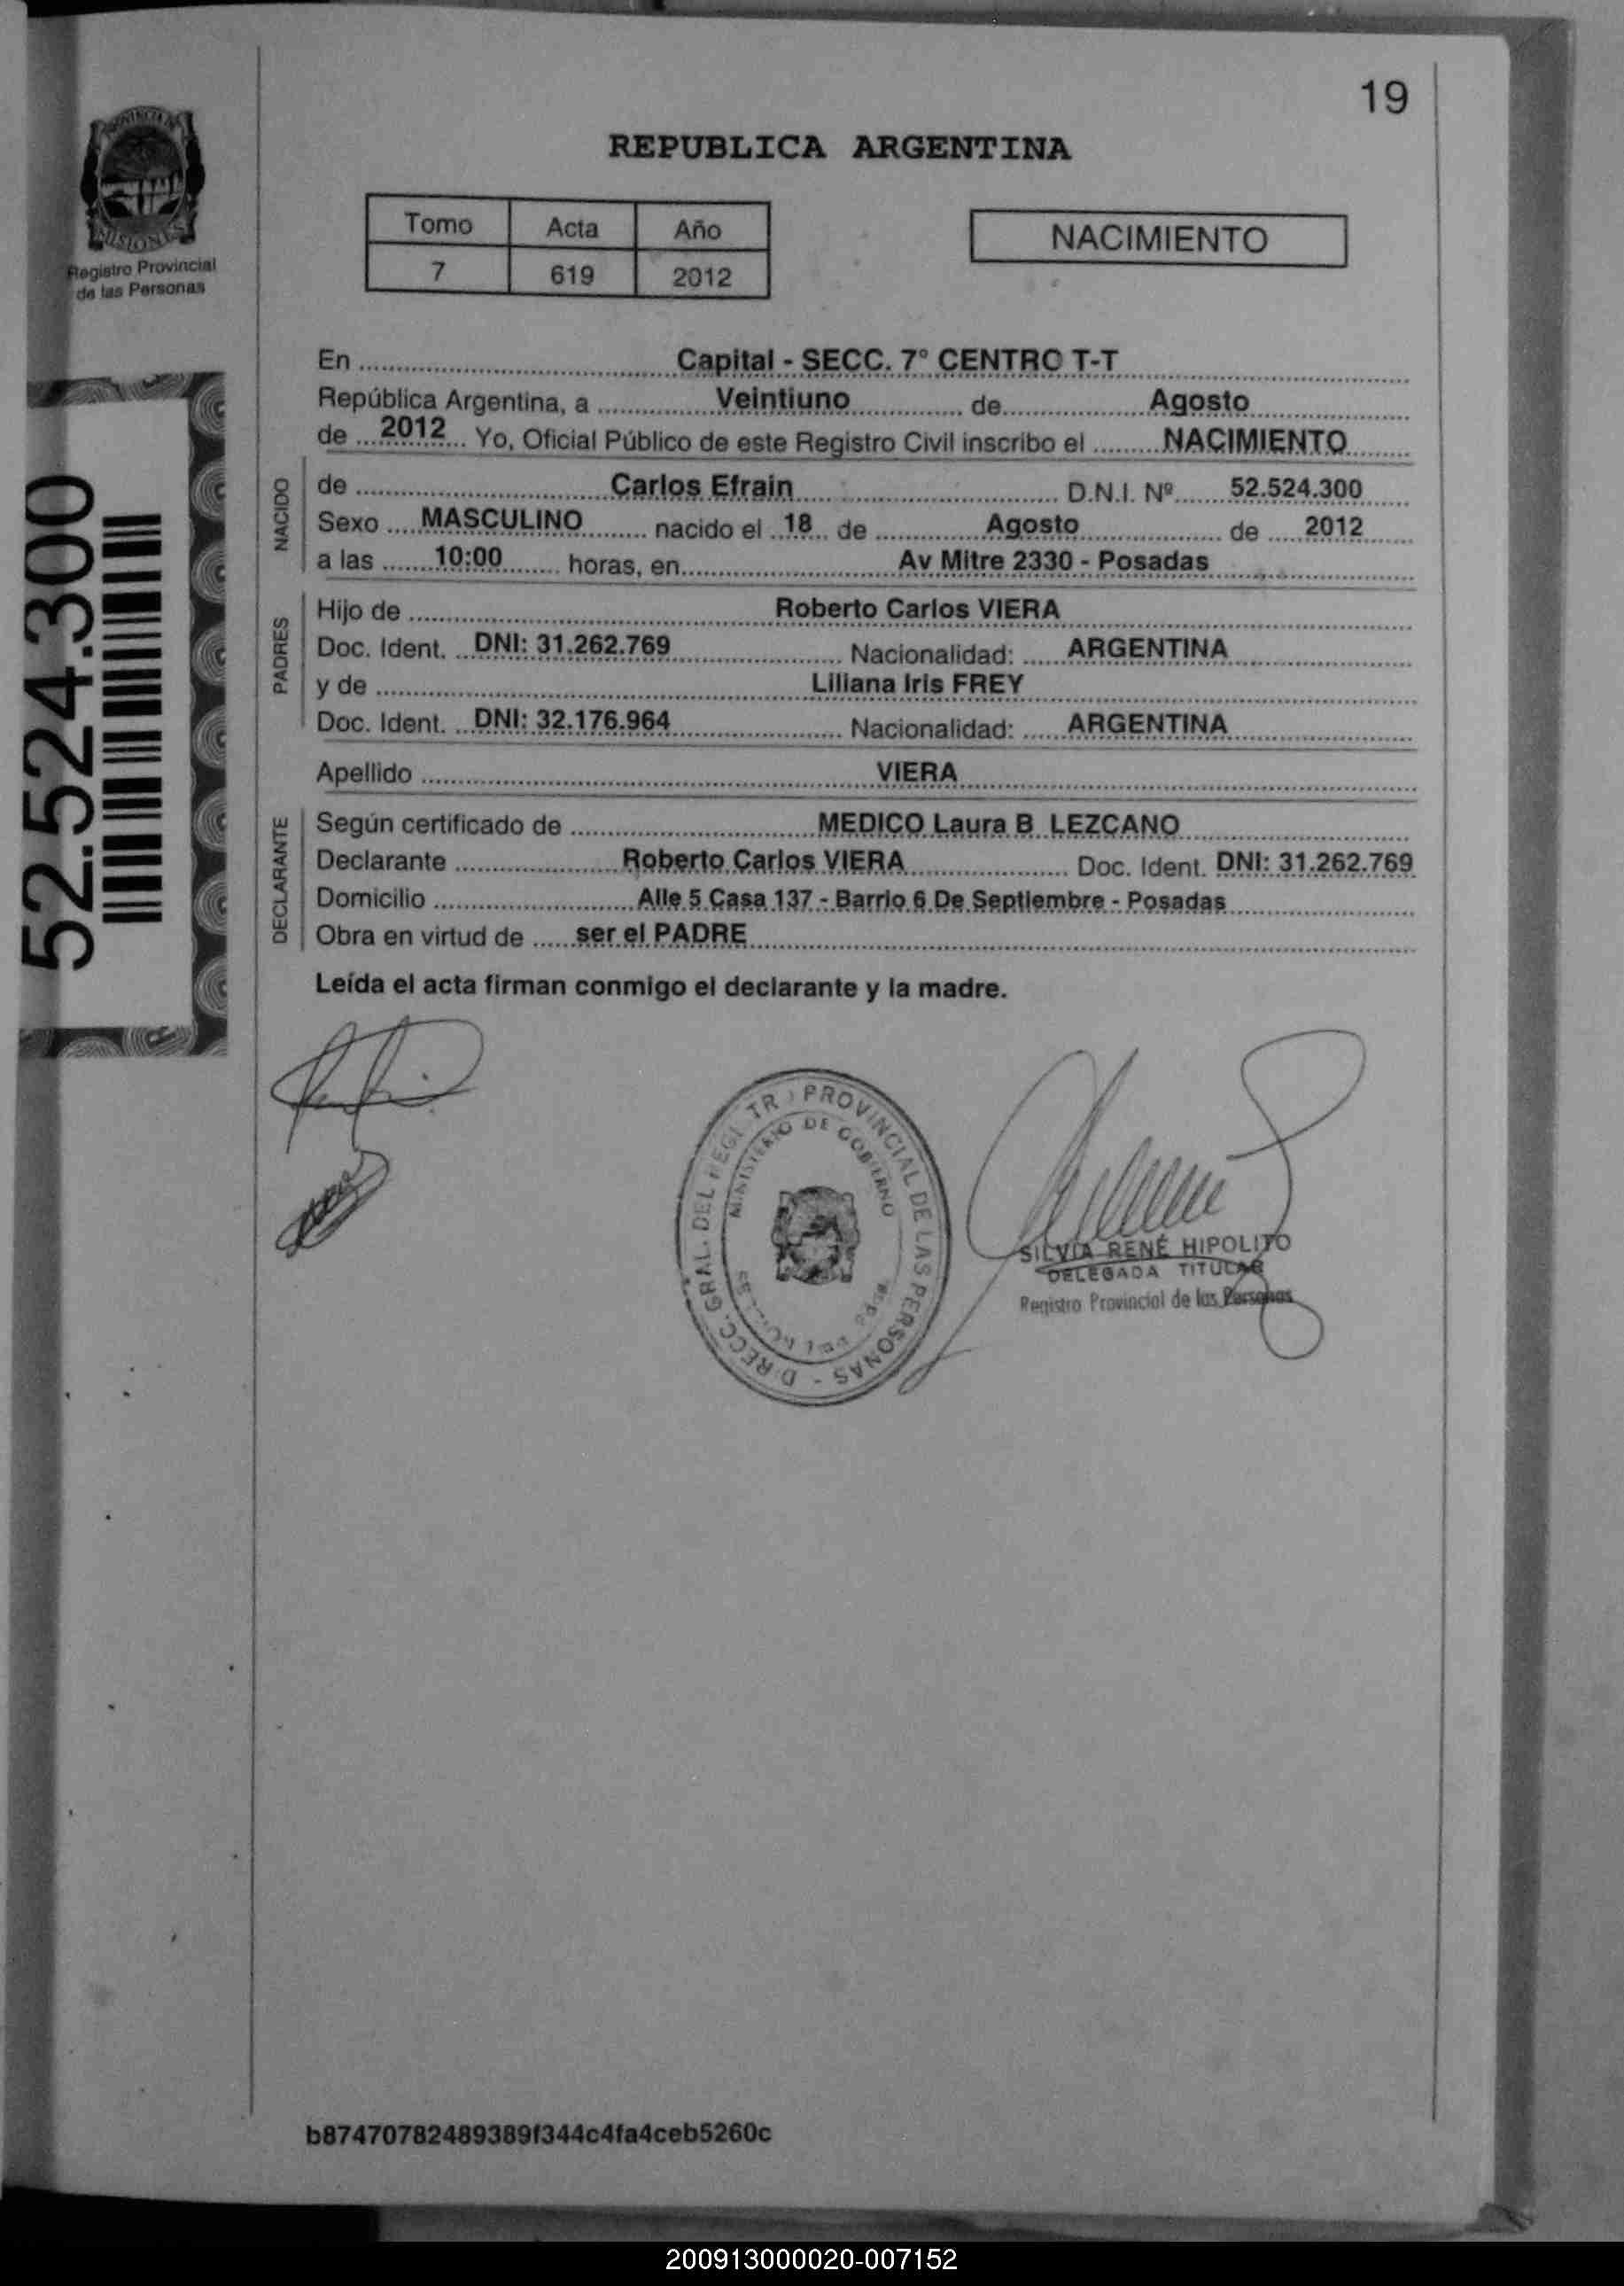 19
PROVINCIA DE
MISIONES
Registro Provincial
de las Personas
REPUBLICA ARGENTINA
Tomo Acta Año
7 619 2012
NACIMIENTO
En Capital - SECC. 7° CENTRO T-T
República Argentina, a Veintiuno de Agosto
de 2012 Yo, Oficial Público de este Registro Civil inscribo el NACIMIENTO
NACIDO
de Carlos Efrain D.N.I. Nº 52.524.300
Sexo MASCULINO nacido el 18 de Agosto de 2012
a las 10:00 horas, en Av Mitre 2330 - Posadas
PADRES
Hijo de Roberto Carlos VIERA
Doc. Ident. DNI: 31.262.769 Nacionalidad: ARGENTINA
y de Liliana Iris FREY
Doc. Ident. DNI: 32.176.964 Nacionalidad: ARGENTINA
Apellido VIERA
DECLARANTE
Según certificado de MEDICO Laura B LEZCANO
Declarante Roberto Carlos VIERA Doc. Ident. DNI: 31.262.769
Domicilio Alle 5 Casa 137 - Barrio 6 De Septiembre - Posadas
Obra en virtud de ser el PADRE
Leída el acta firman conmigo el declarante y la madre.
52.524.300
PROVINCIAL DE LAS PERSONAS
MINISTERIO DE GOBIERNO
SILVIA RENÉ HIPOLITO
DELEGADA TITULAR
Registro Provincial de las Personas
b87470782489389f344c4fa4ceb5260c
200913000020-007152